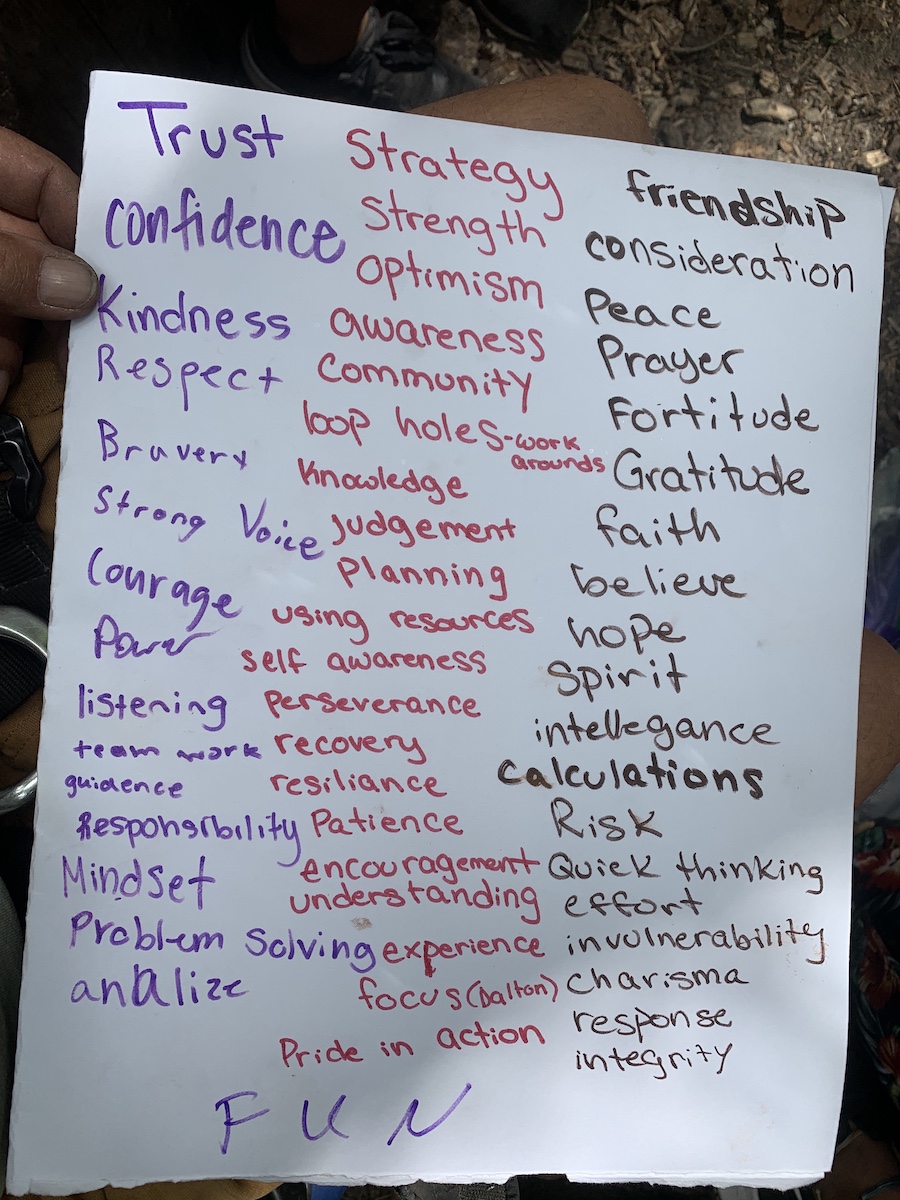 Trust
Confidence
Kindness
Respect
Bravery
Strong Voice
Courage
Power
listening
team work
guidence
Responsibility
Mindset
Problem Solving
analize
Strategy
Strength
Optimism
awareness
Community
loop holes-work
arounds
knowledge
judgement
planning
using resources
self awareness
perseverance
recovery
resiliance
Patience
encouragement
understanding
experience
focus (Dalton)
Pride in action
friendship
consideration
Peace
Prayer
Fortitude
Gratitude
faith
believe
hope
Spirit
intellegance
calculations
Risk
Quick thinking
effort
invulnerability
charisma
response
integrity
FUN